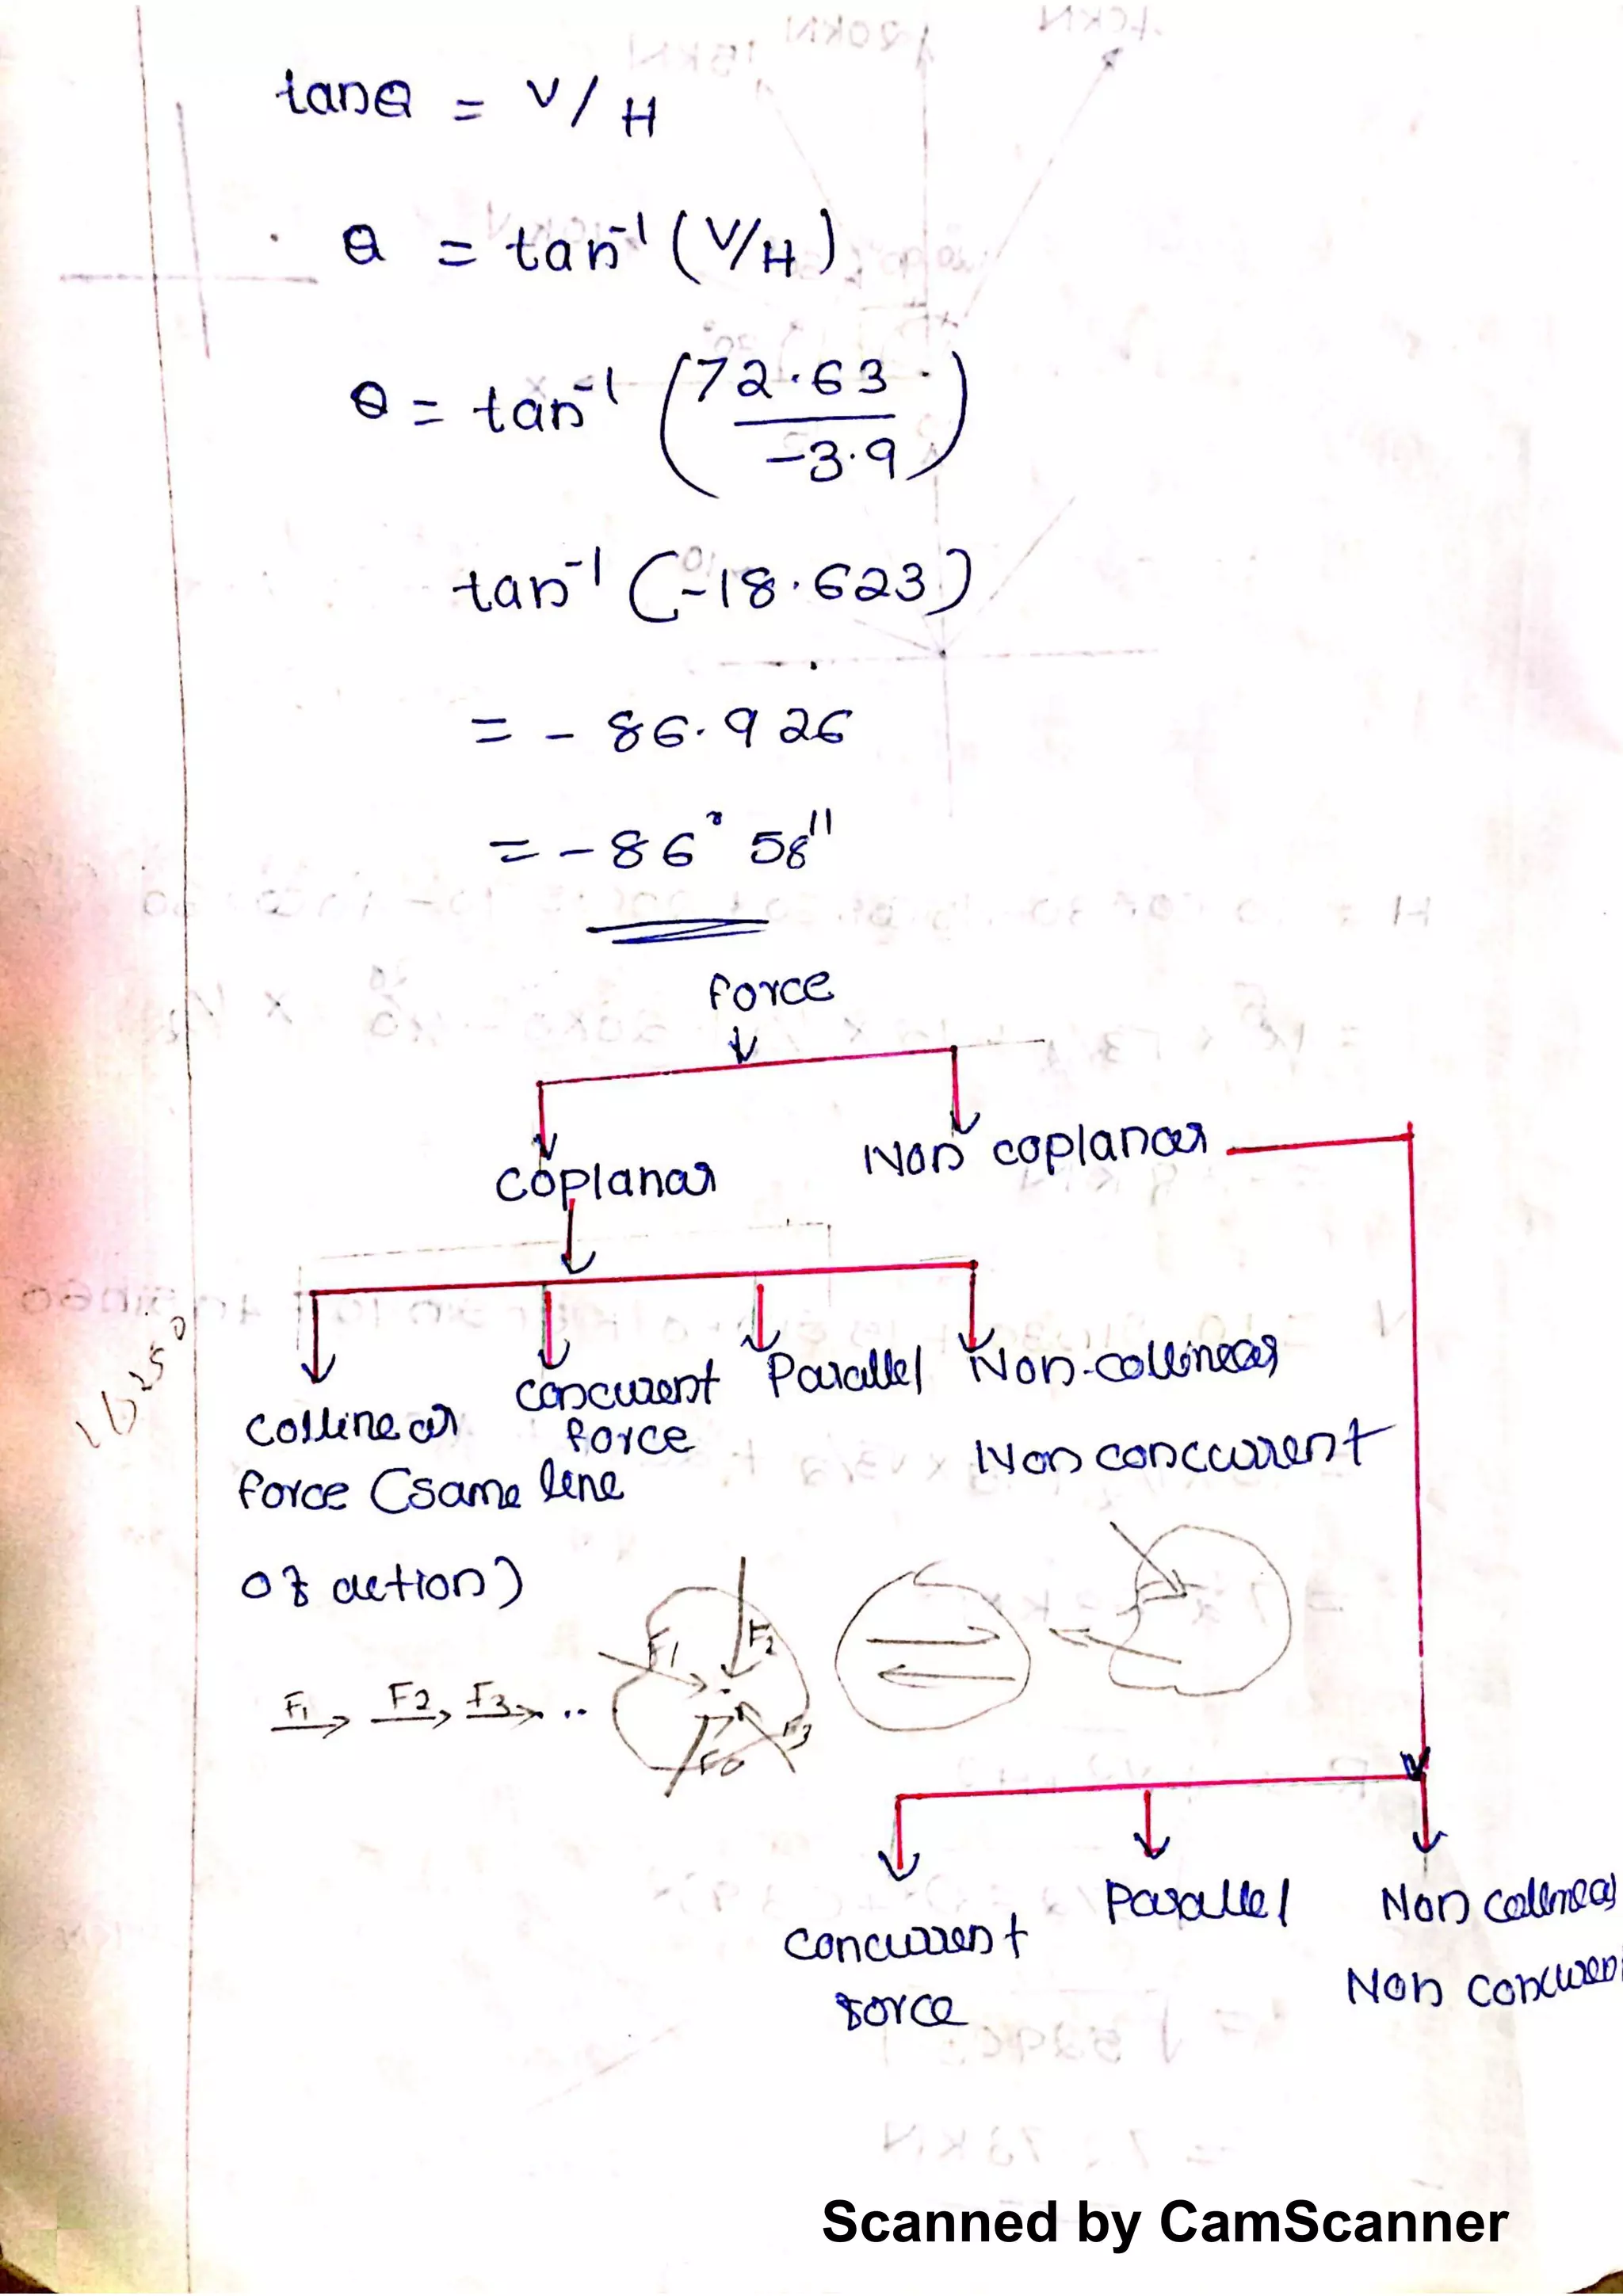 tanθ = V/H
θ = tan⁻¹ (V/H)
θ = tan⁻¹ (72.63 / -3.9)
tan⁻¹ (-18.623)
= - 86.926
= - 86° 58"
force
coplanar
Non coplanar
collinear
force (same line
of action)
concurent
force
Parallel
Non-collinear
Non concurrent
F1 F2 F3 ..
F1
F2
F3
concurrent
force
Parallel
Non collinear
Scanned by CamScanner